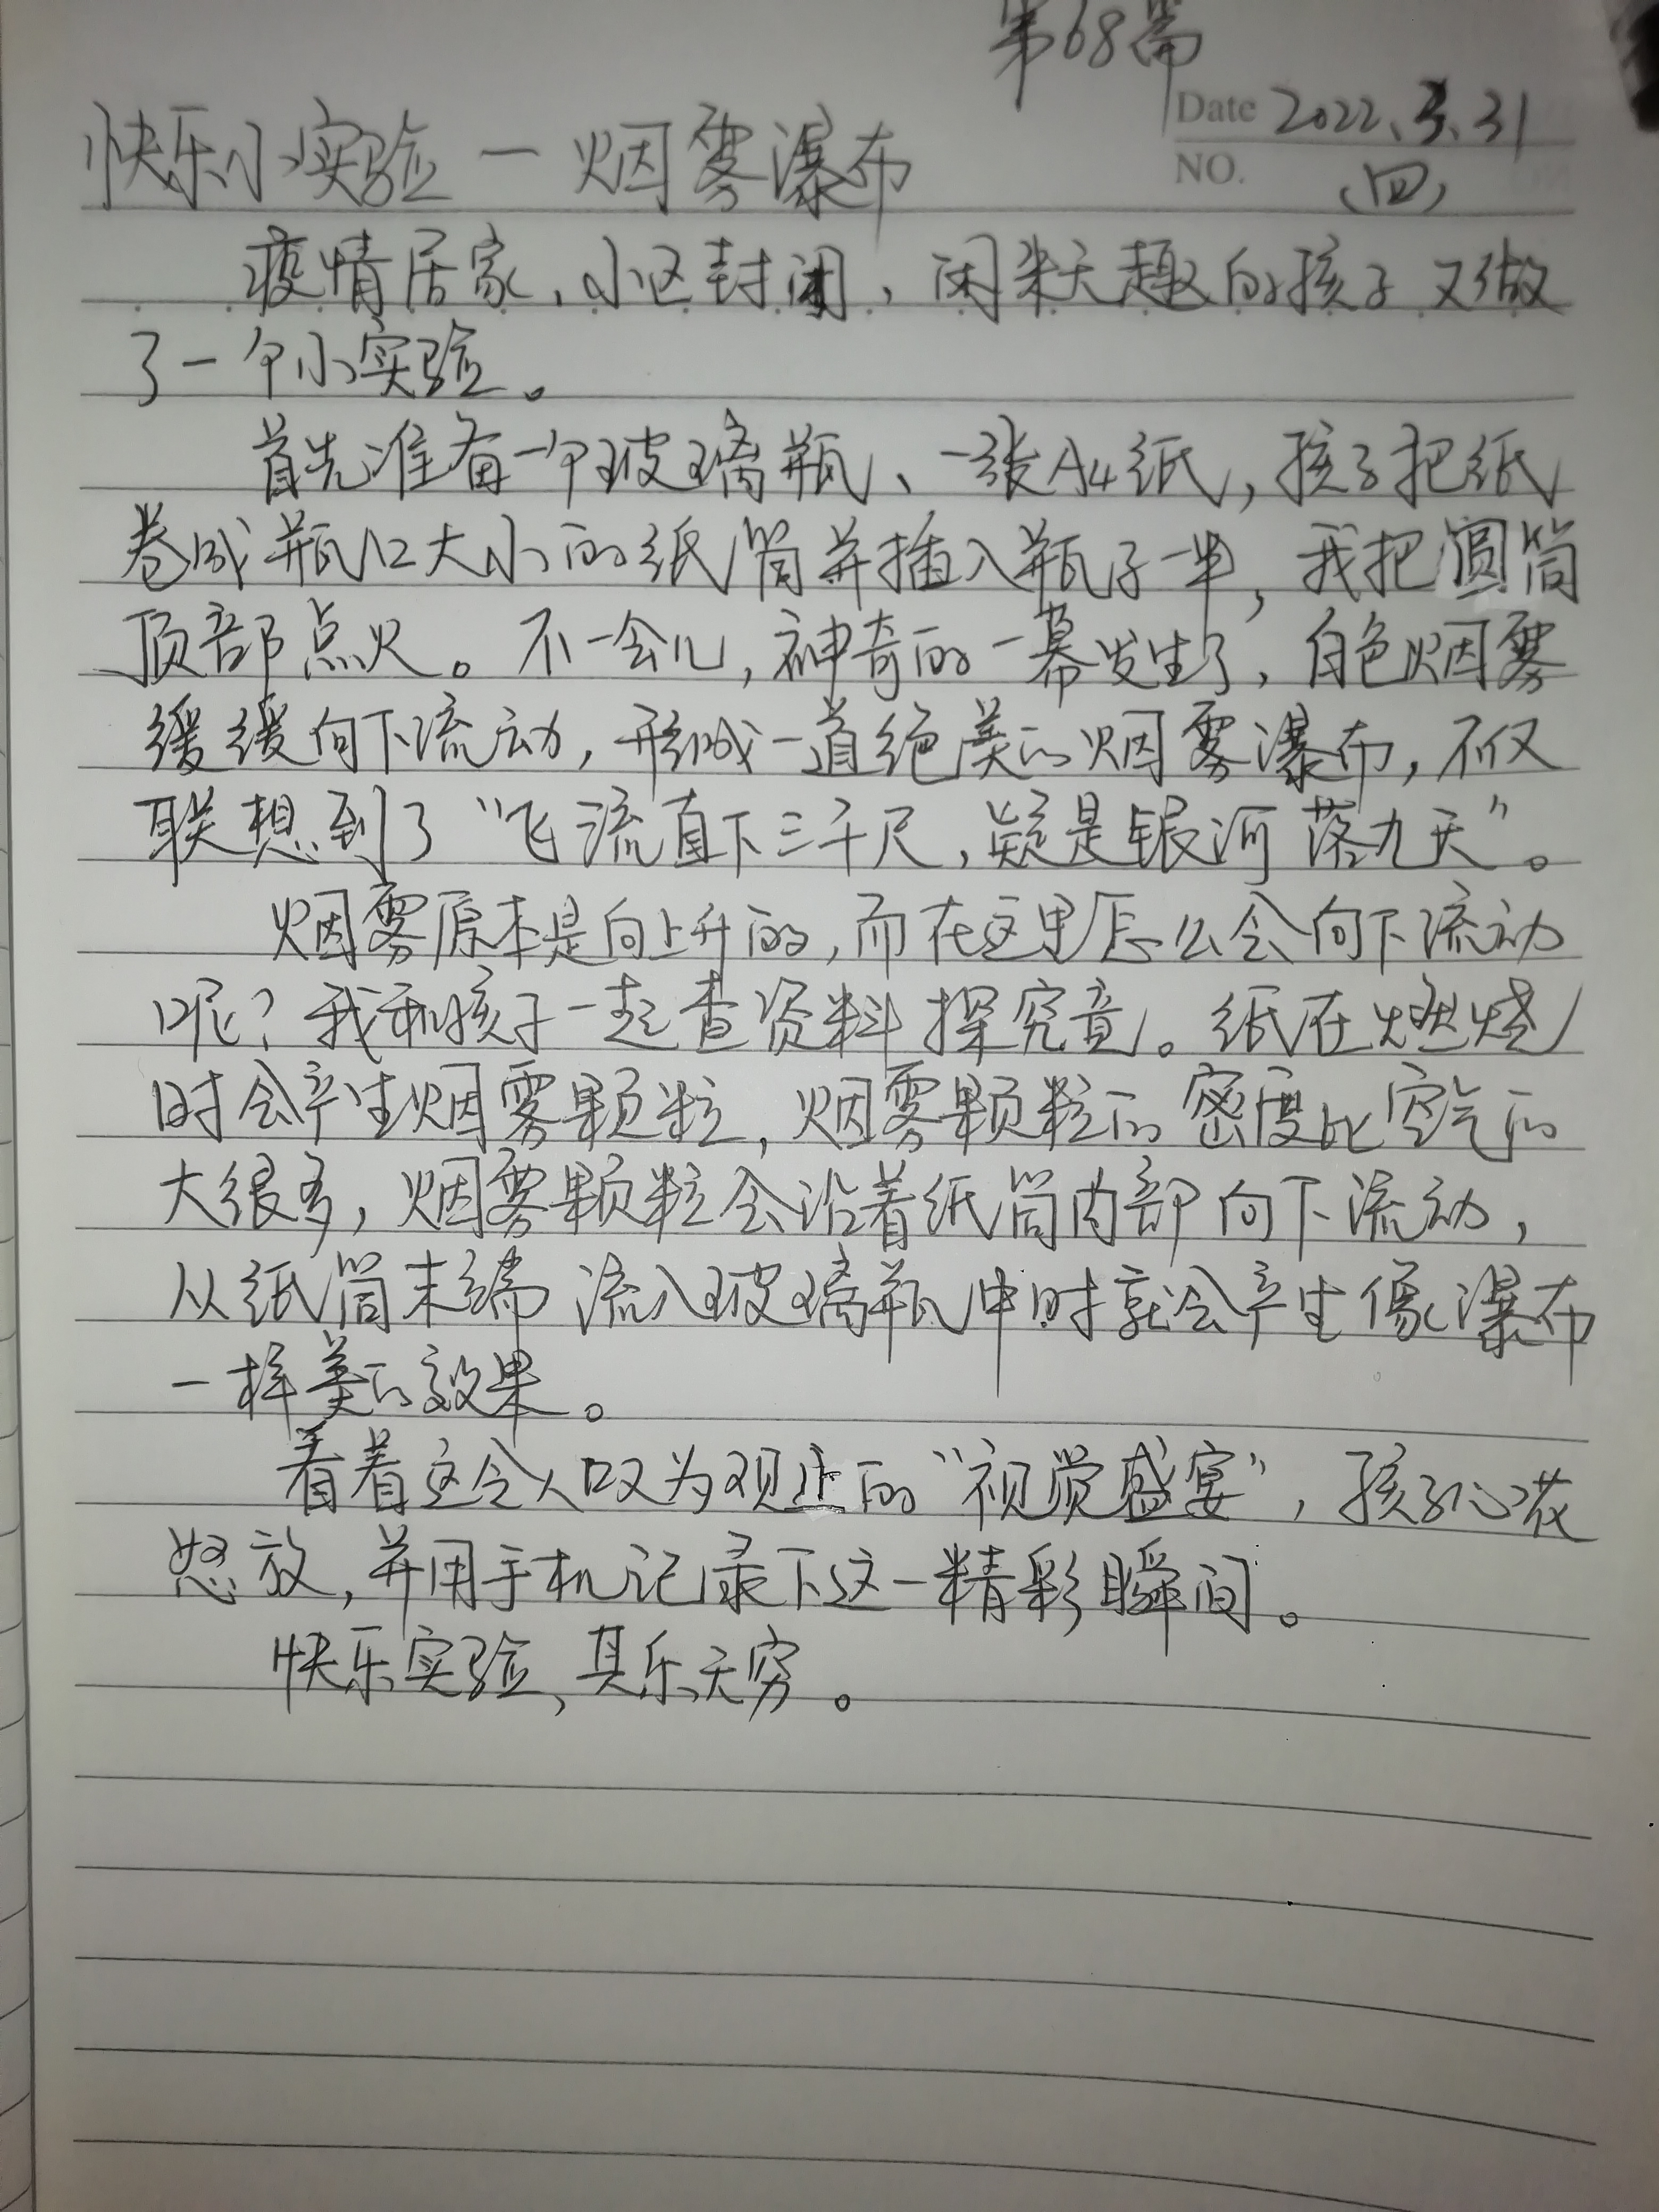 第68篇
Date 2022.3.31
NO. (四)
快乐小实验一烟雾瀑布
疫情居家,小区封闭,闲来无趣的孩子又做
了一个小实验。
首先准备一个玻璃瓶、一张A4纸,孩子把纸
卷成瓶口大小的纸筒并插入瓶子一半,我把圆筒
顶部点火。不一会儿,神奇的一幕发生了,白色烟雾
缓缓向下流动,形成一道绝美的烟雾瀑布,不仅
联想到了“飞流直下三千尺,疑是银河落九天”。
烟雾原本是向上升的,而在这里怎么会向下流动
呢?我和孩子一起查资料探究竟。纸在燃烧
时会产生烟雾颗粒,烟雾颗粒的密度比空气的
大很多,烟雾颗粒会沿着纸筒内部向下流动,
从纸筒末端流入玻璃瓶中时就会产生像瀑布
一样美的效果。
看着这令人叹为观止的“视觉盛宴”,孩子心花
怒放,并用手机记录下这一精彩瞬间。
快乐实验,其乐无穷。